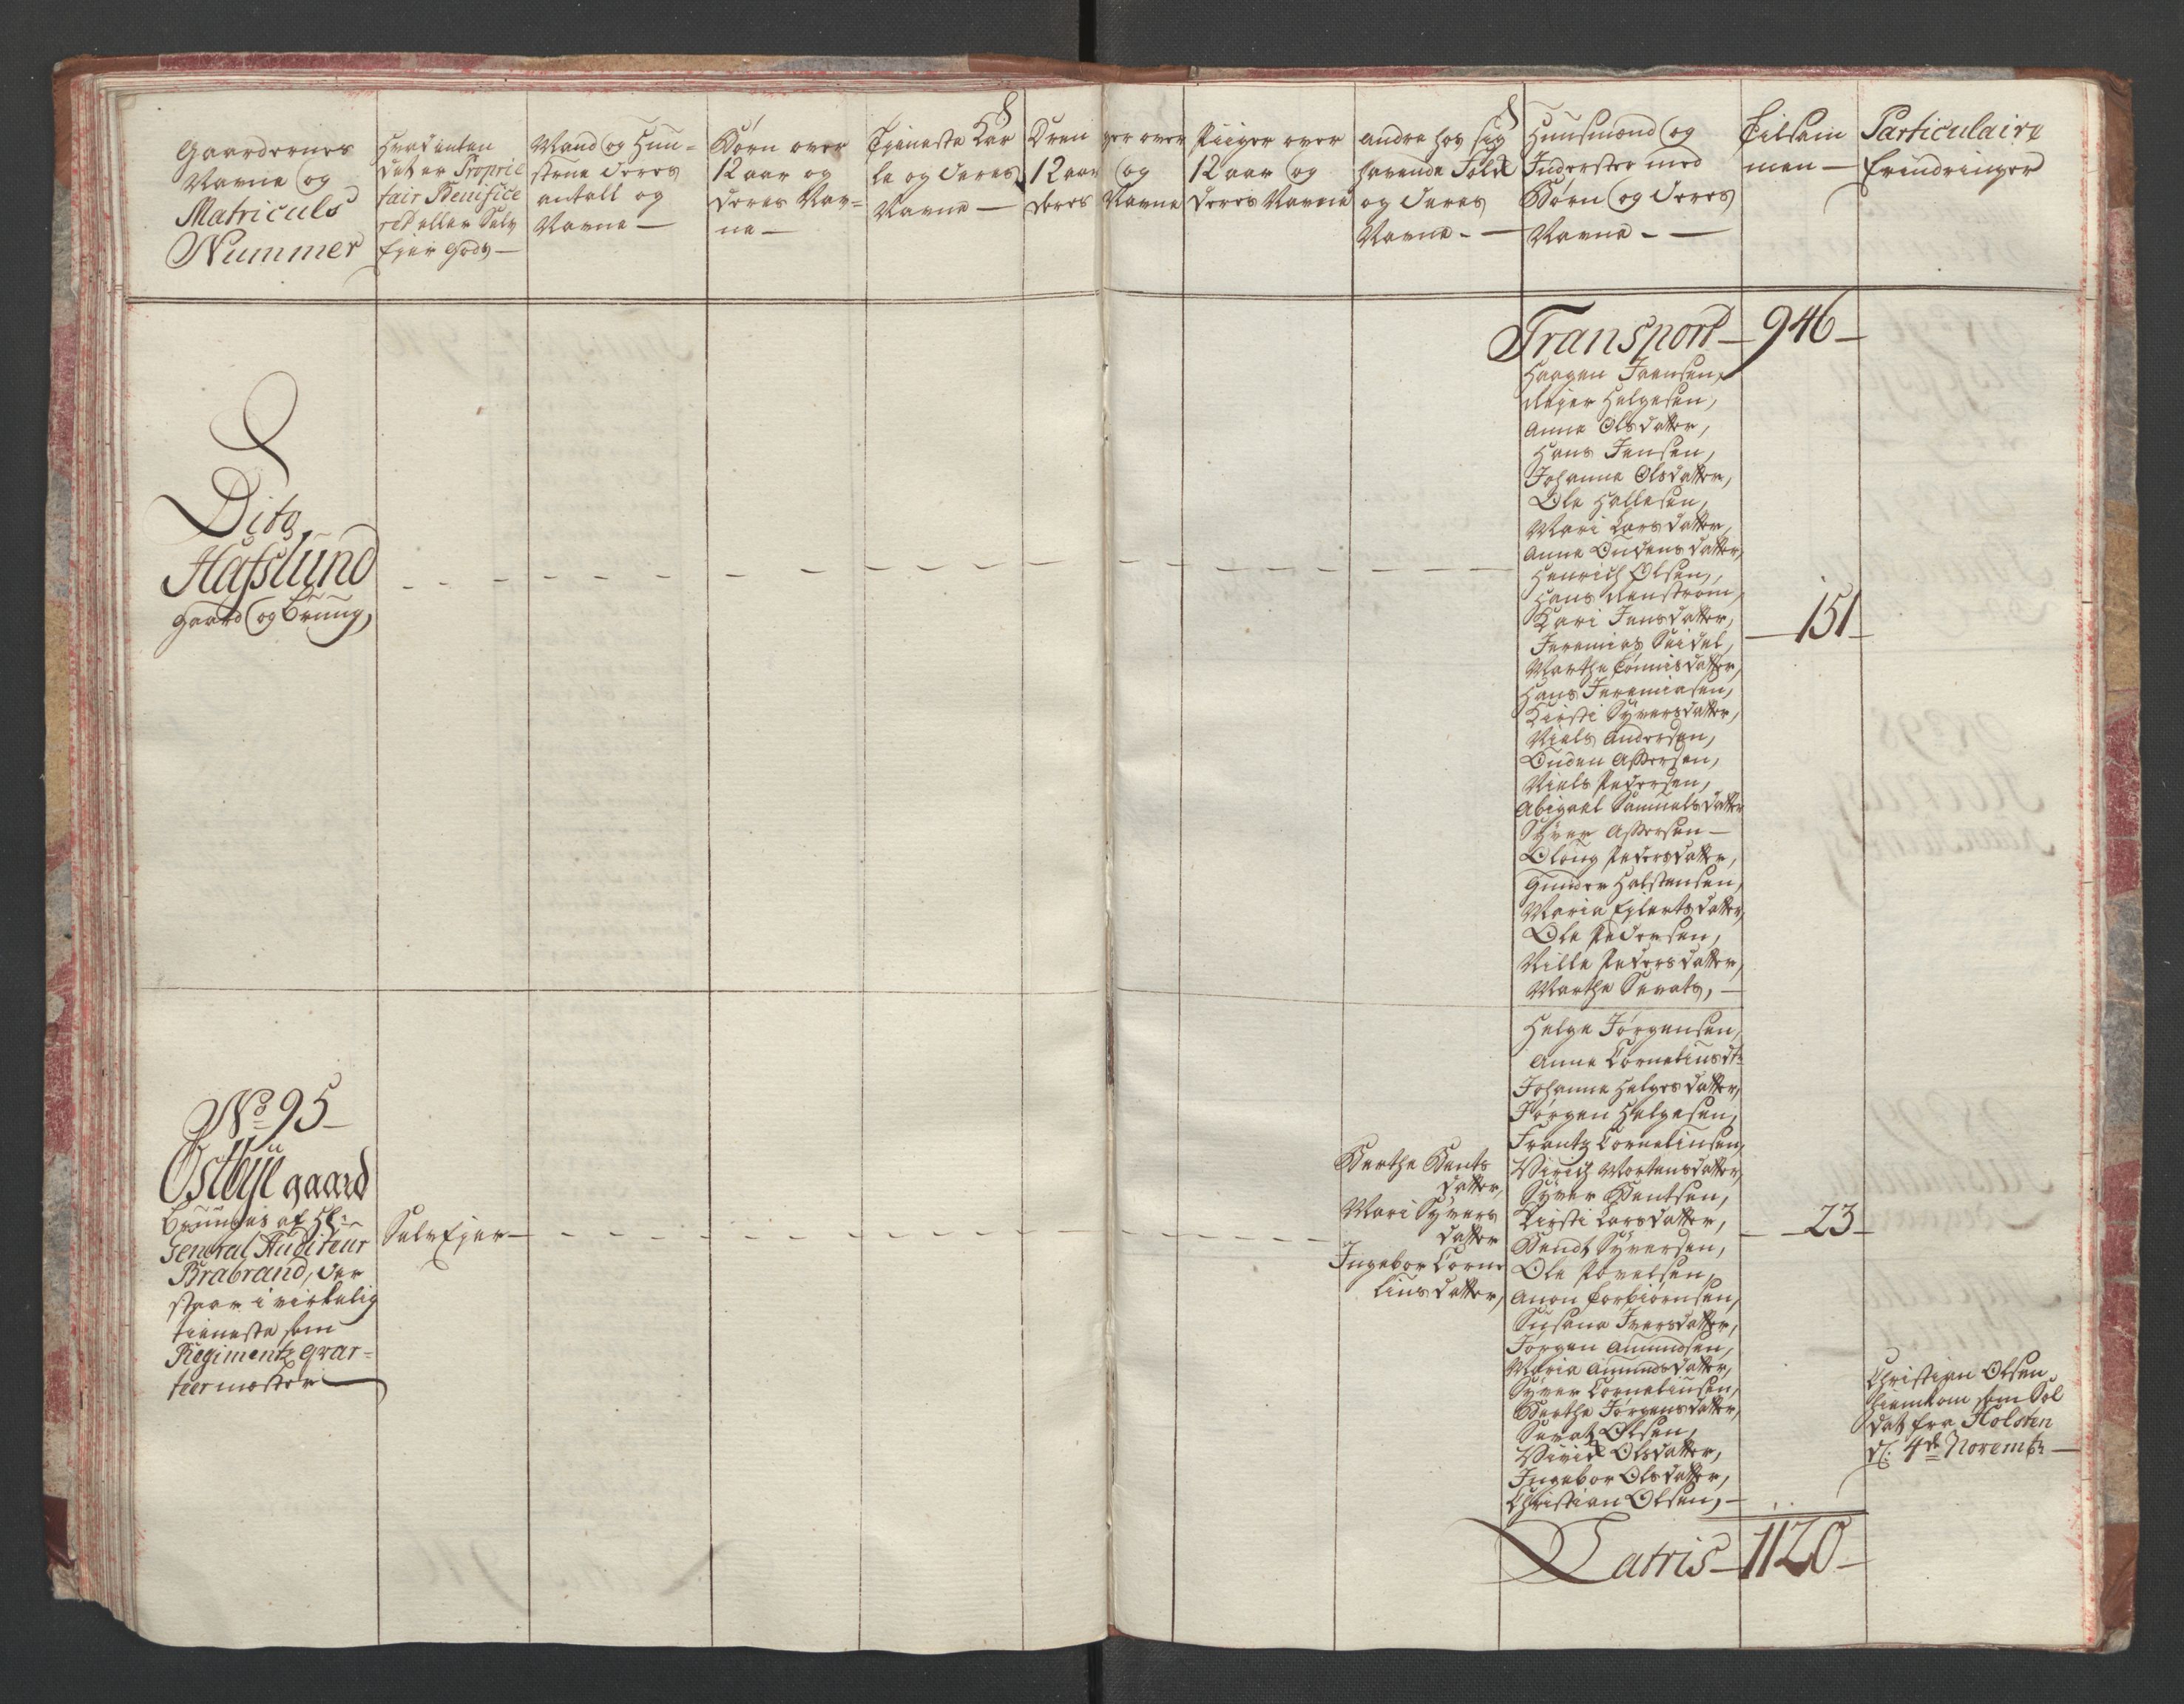 Gaardernes
Navne og
Matriculs
Nummer
Hvad enten
det er Proprie
tair Benifice
ret eller Selv
Ejer Gods —
Mand og Hu¨u-
strue deres
antall og
Navne —
Børn over
12 aar og
deres Nav=
ne —
Tjeneste Kar
le og deres
Navne —
Dren ger over
12 aar og
deres Navne
Piiger over
12 aar og
deres Navne
andre hos sig
havende Folk
og deres
Navne - —
Huusmænd og
Inderster med
Børn og deres
Navne - —
Tilsam
men —
Particulaire
Erindringer
Transport — 946 —
Dito
Hafslund
gaard og Brüug,
Haagen Ivensen,
Rejer Helgesen,
Anne Olsdatter,
Hans Jensen,
Johanne Olsdatter,
Ole Hallesen,
Mari Larsdatter,
Anne Oudensdatter,
Henrich Olsen,
Hans Renstrøm,
Kari Jensdatter,
Jeremias Seidel,
Marthe Tønnisdatter,
Hans Jeremiasen,
Kirsti Syversdatter,
Niels Andersen,
Ouden Assersen,
Niels Pedersen,
Abigael Samuelsdatter
Syver Assersen —
Oloug Pedersdatter,
Gunder Halstensen,
Maria Ejlertsdatter,
Ole Pedersen,
Nille Pedersdatter,
Marthe Sevats, —
— 151 —
No 95 —
Østbÿe gaard
brüuges af Hr:
General Auditeur
Brabrand, der
staar i virkelig
tieneste som
Regimentz qvar-
teermester —
Selv Ejer —
Berthe Bents
datter,
Mari Syvers
datter
Ingebor Corne
liusdatter,
Helge Jørgensen,
Anne Corneliusdtr
Johanne Helgesdatter,
Jørgen Helgesen,
Frantz Corneliusen,
Sirich Mortensdatter,
Syver Bentsen,
Kirsti Larsdatter,
Bendt Syversen,
Ole Povelsen,
Anon Torbiørnsen,
Susana Iversdatter,
Jørgen Amundsen,
Maria Amundsdatter,
Syver Corneliusen,
Berthe Jørgensdatter,
Sevat Olsen,
Sivid Olsdatter,
Ingebor Olsdatter,
Christian Olsen, —
— 23 —
Christian Olsen
hiemkom som Sol
dat fra Holsten
d: 4de Novembr —
Latris — 1120 —